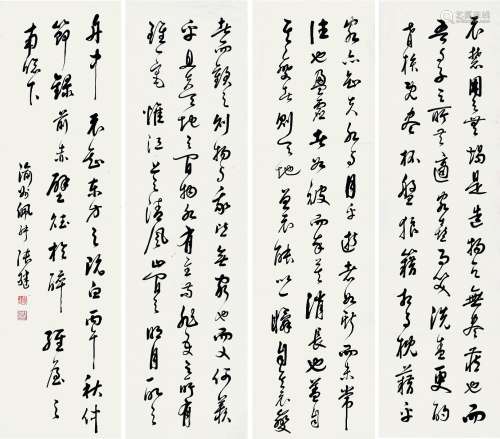 禁用之無竭是造物者之無盡藏也而
吾與子之所共適客喜而笑洗盞更酌
肴核既盡杯盤狼籍相與枕藉乎
客亦知夫水與月乎逝者如斯而未嘗
往也盈虛者如彼而卒莫消長也蓋自
其變者則天地曾不能以一瞬自其不變
者而觀之則物與我皆無盡也而又何羨
乎且夫天地之間物各有主苟非吾之所有
雖一毫惟江上之清風山間之明月
舟中不知東方之既白丙午秋
節錄前赤壁賦於醉經屋之
南牖下
渝州